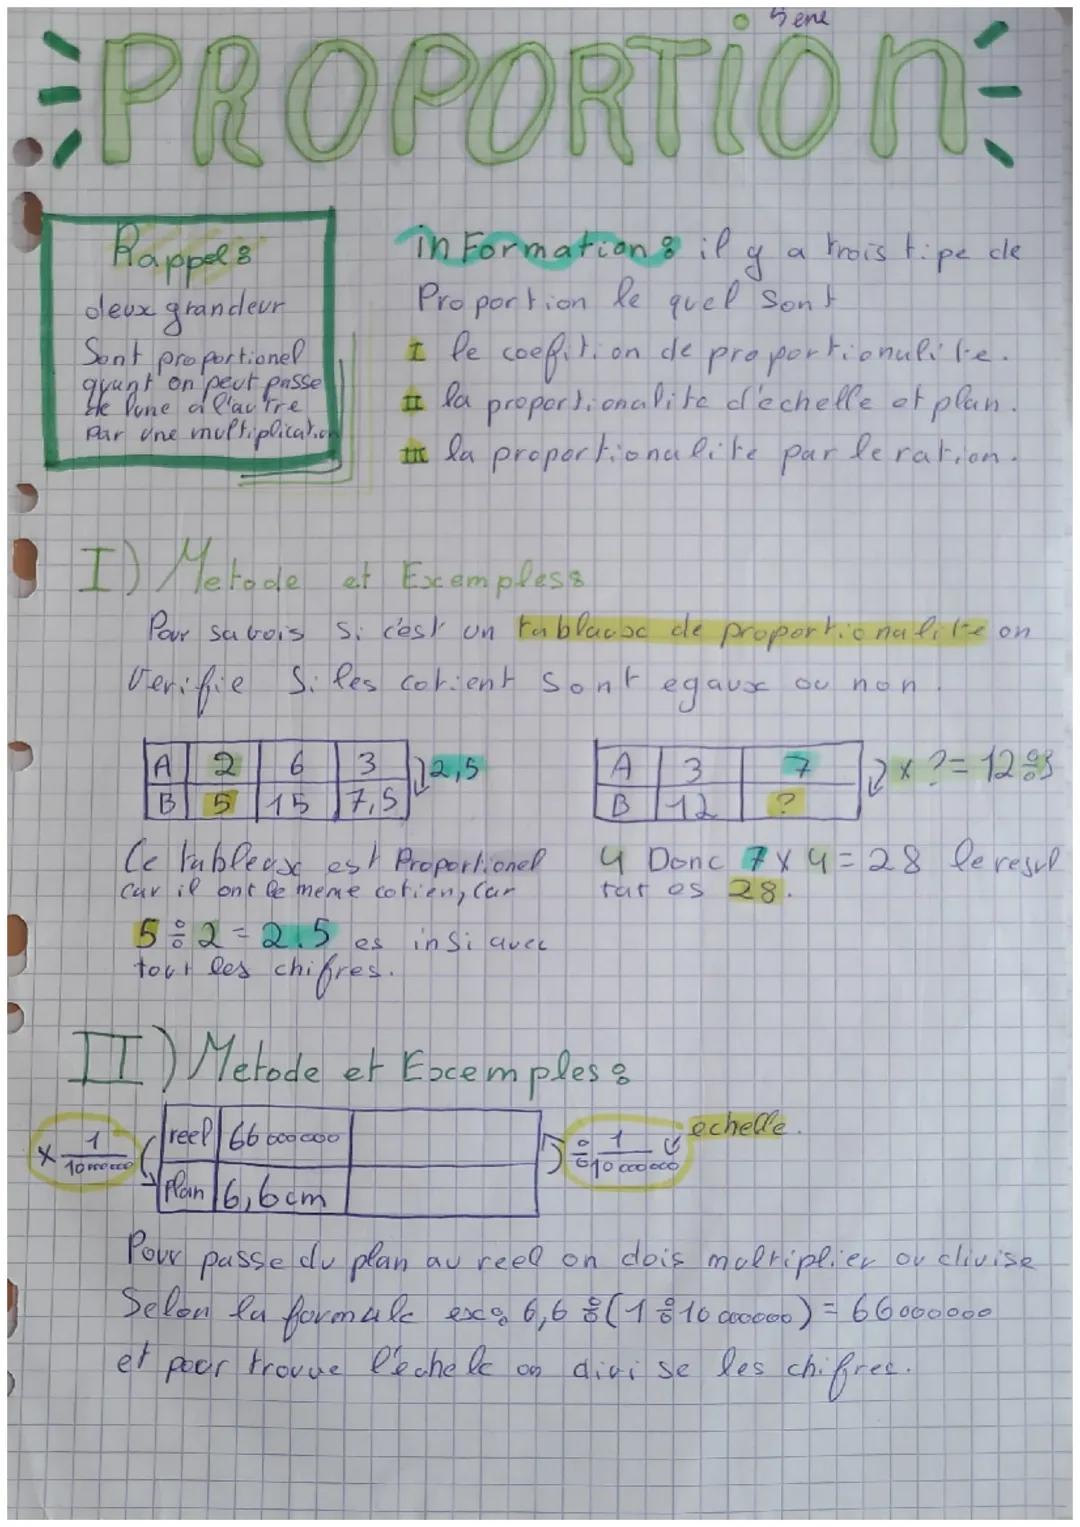 5ene
PROPORTiOn
Rappel:
deux grandeur
Sont proportionel
quant on peut passe
de l'une a l'autre
par une multiplication
inFormation: il y a trois tipe de
Proportion le quel sont
I le coefition de proportionulite.
II la proportionalite d'échelle et plan.
III la proportionulite par le ration.
I) Metode et Exemples:
Pour savois si c'est un tableaux de proportionalite on
Verifie Si les cotient sont egaux ou non.
A 2 6 3 2,5
B 5 15 7,5
A 3 7 x ?= 12÷3
B 12 ?
Ce tableax est Proportionel
car il ont le meme cotien, car
5÷2=2.5 es insi avec
tout les chifres.
4 Donc 7x4=28 le resul
tat es 28.
II) Metode et Excemples:
x 1/10000000 reel 66000000 ÷ 1/10000000 echelle.
plan 6,6cm
Pour passe du plan au reel on dois multiplier ou divise
Selon la formule ex: 6,6÷(1÷10000000)=66000000
et pour trouve l'échele on divise les chifres.